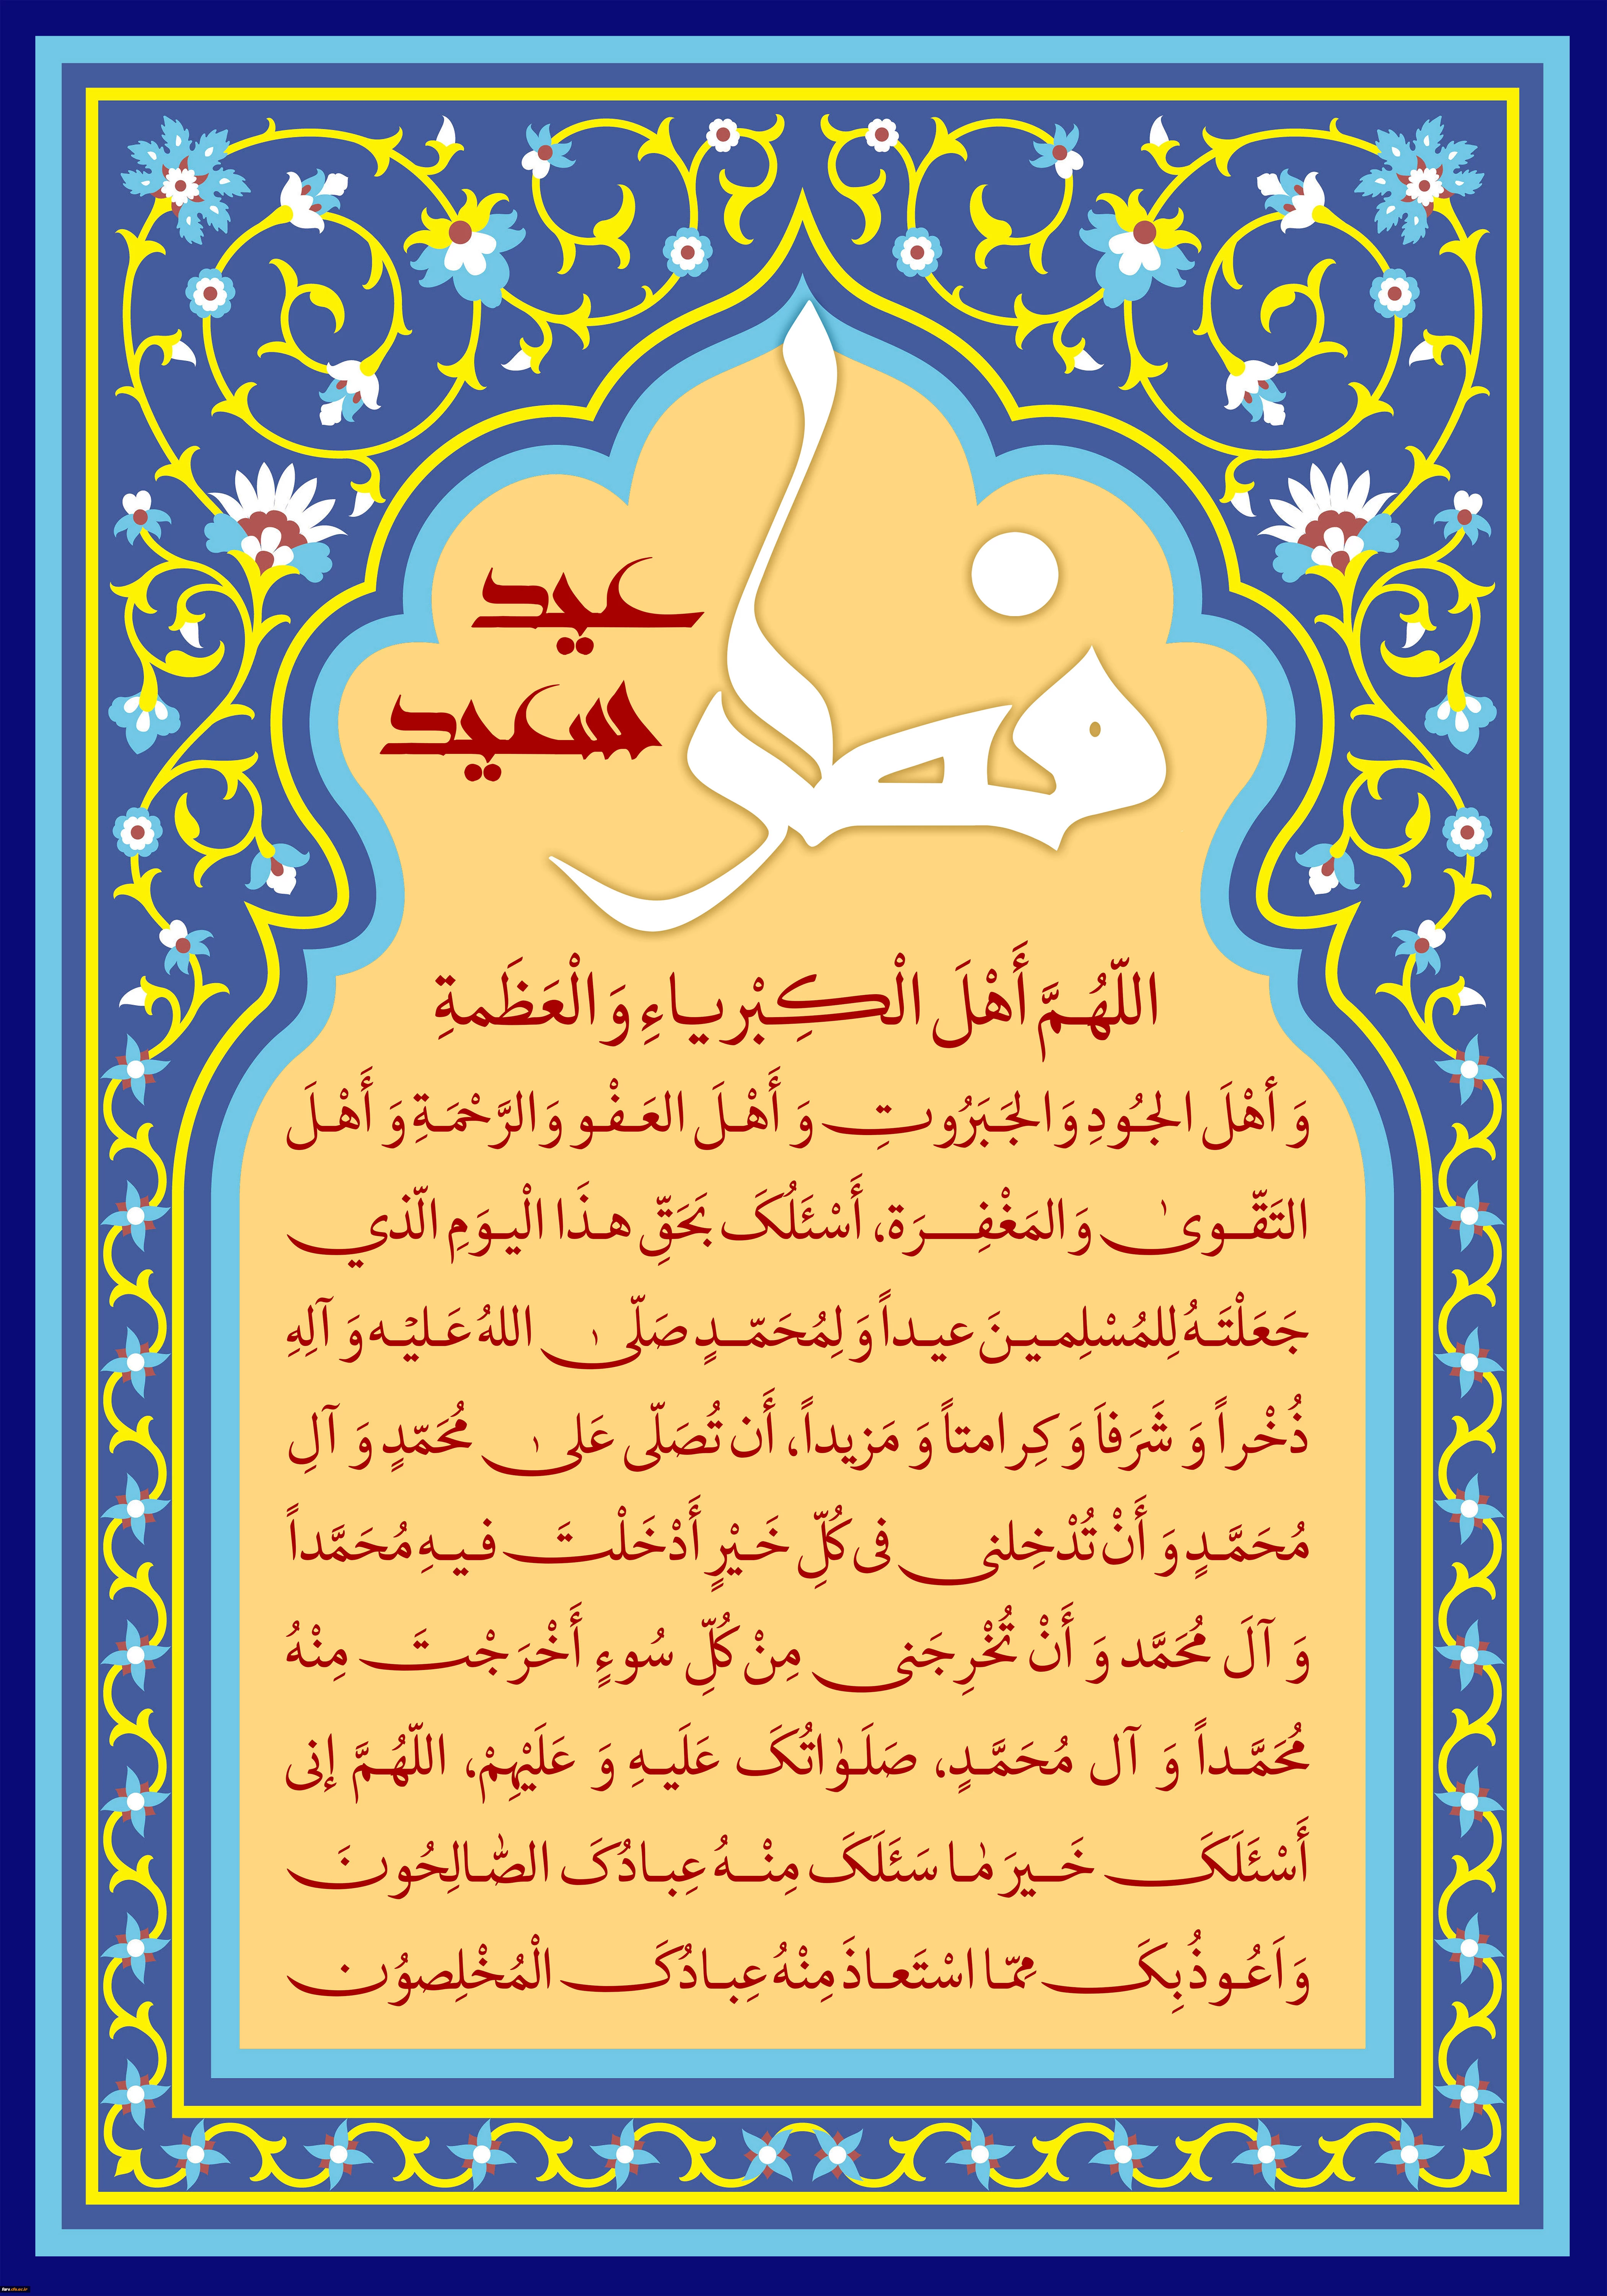 عید
سعید
فطر
اللّهُمَّ أَهْلَ الْکِبْریاءِ وَ الْعَظَمةِ
وَ أهْلَ الجُودِ وَ الجَبَرُوتِ وَ أَهْلَ العَفْو وَ الرَّحْمَةِ وَ أَهْلَ
التَقّوىٰ وَ المَغْفِرَة، أَسْئَلُکَ بَحَقِّ هذَا الْیوَمِ الّذي
جَعَلْتَهُ لِلمُسْلِمینَ عیداً وَ لِمُحَمّدٍ صَلّىٰ اللهُ عَلیْه وَ آلِهِ
ذُخْراً وَ شَرَفاَ وَ کِرامتاً وَ مَزیداً، أَن تُصَلّی عَلىٰ مُحَمّدٍ وَ آلِ
مُحَمَّدٍ وَ أَنْ تُدْخِلنی فی کُلِّ خَیْرٍ أَدْخَلْتَ فیهِ مُحَمَّداً
وَ آلَ مُحَمَّد وَ أَنْ تُخْرِجَنی مِنْ کُلِّ سُوءٍ أَخْرَجْتَ مِنْهُ
مُحَمَّداً وَ آل مُحَمَّدٍ، صَلَوٰاتُکَ عَلَیهِ وَ عَلَیْهِمْ، اللّهُمَّ إنی
أَسْئَلَکَ خَیرَ مٰا سَئَلَکَ مِنْهُ عِبادُکَ الصّٰالِحُونَ
وَ اَعُوذُ بِکَ مِمّا اسْتَعاذَ مِنْهُ عِبادُکَ الْمُخْلِصوُن